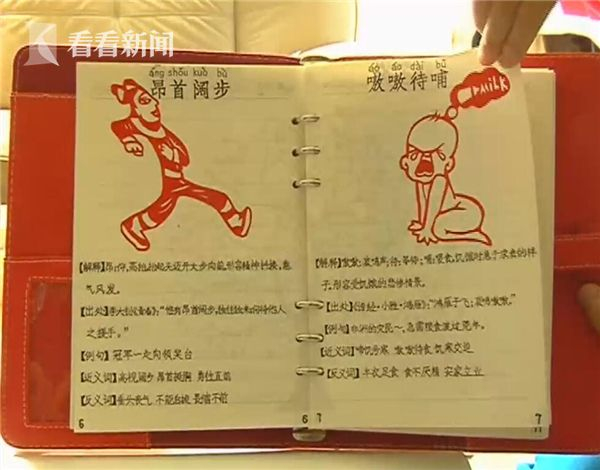 看看新闻
áng shǒu kuò bù
昂首阔步
【解释】昂:仰,高抬。抬起头迈开大步向前,形容精神抖擞,意
气风发。
【出处】
之援手。"
【例句】冠军一定向领奖台
【近义词】高视阔步 昂首挺胸 勇往直前
【反义词】垂头丧气 不能自拔 畏缩不前
6
6
áo áo dài bǔ
嗷嗷待哺
MILK
【解释】嗷嗷:哀鸣声;待:等待;哺:喂食。饥饿时急于求食的样
子,形容受饥饿的悲惨情景。
【出处】《诗经·小雅·鸿雁》:"鸿雁于飞;哀鸣嗷嗷。"
【例句】非洲的灾民~,急需粮食度过荒年。
【近义词】啼饥号寒 嗷嗷待食 饥寒交迫
【反义词】丰衣足食 食不厌精 安家立业
7
7